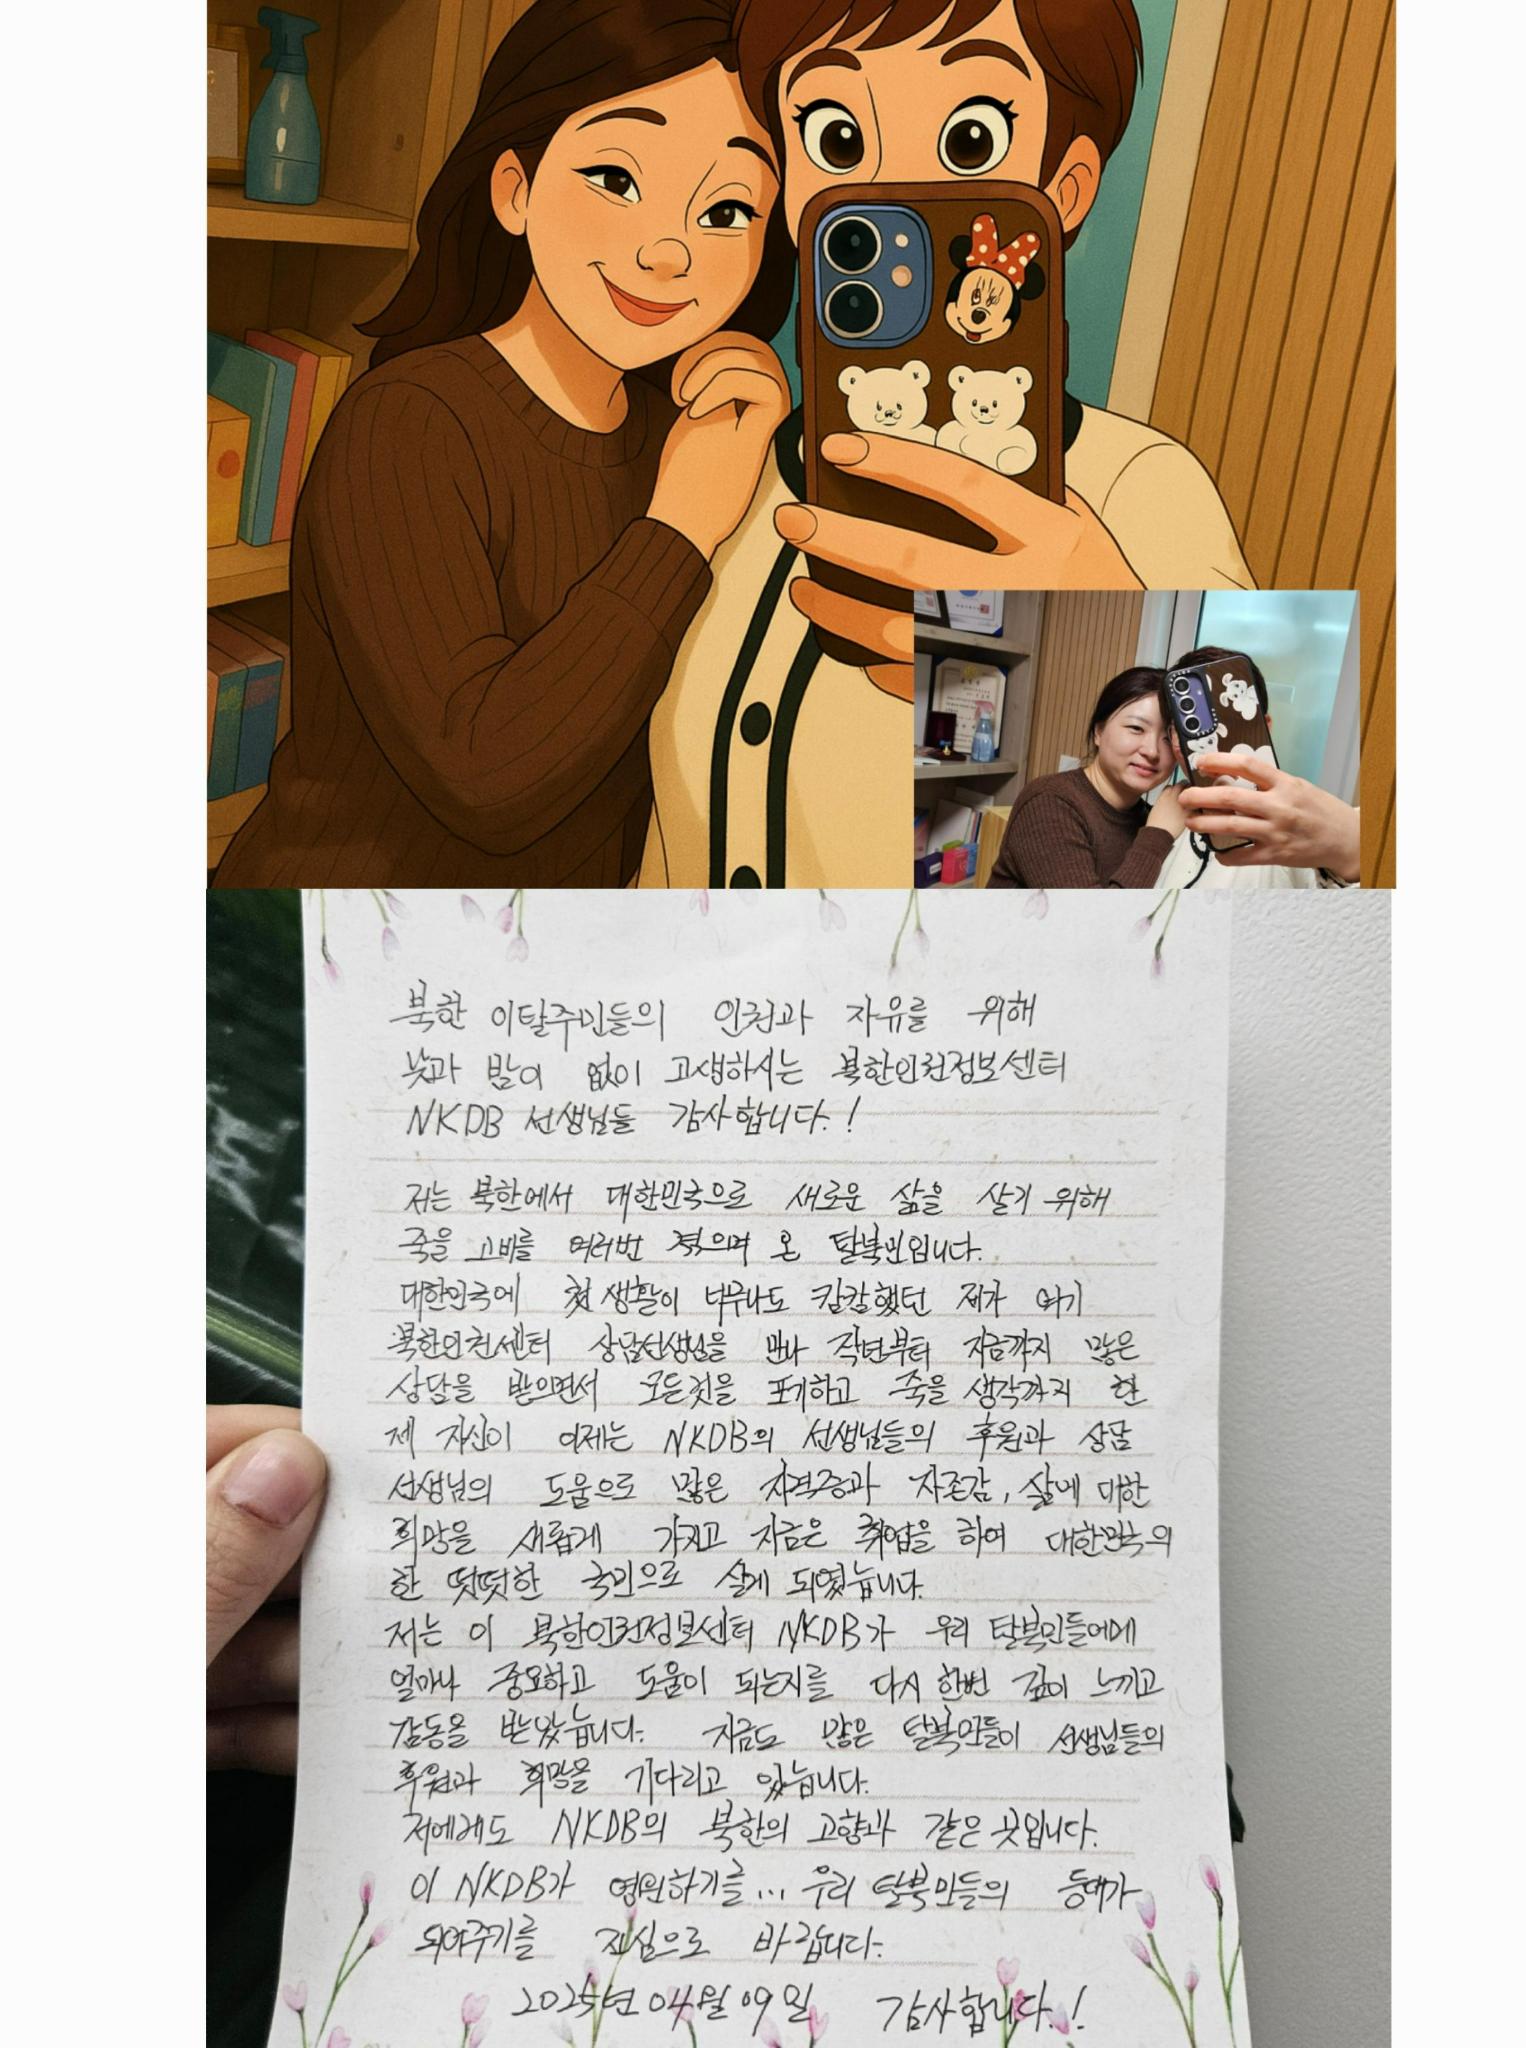 북한 이탈주민들의 인권과 자유를 위해
낮과 밤이 없이 고생하시는 북한인권정보센터
NKDB 선생님들 감사합니다.!
저는 북한에서 대한민국으로 새로운 삶을 살기 위해
죽을 고비를 여러번 겪으며 온 탈북민입니다.
대한민국에 첫 생활이 너무나도 캄캄했던 제가 여기
북한인권센터 상담선생님을 만나 작년부터 지금까지 많은
상담을 받으면서 모든것을 포기하고 죽을 생각까지 한
제 자신이 이제는 NKDB의 선생님들의 후원과 상담
선생님의 도움으로 많은 자격증과 자존감, 삶에 대한
희망을 새롭게 가지고 지금은 취업을 하여 대한민국의
한 떳떳한 국민으로 살게 되였습니다.
저는 이 북한인권정보센터 NKDB가 우리 탈북민들에게
얼마나 중요하고 도움이 되는지를 다시 한번 깊이 느끼고
감동을 받았습니다. 지금도 많은 탈북민들이 선생님들의
후원과 희망을 기다리고 있습니다.
저에게도 NKDB의 북한의 고향과 같은 곳입니다.
이 NKDB가 영원하기를... 우리 탈북민들의 등대가
되어주기를 진심으로 바랍니다.
2025년 04월 09일 감사합니다.!